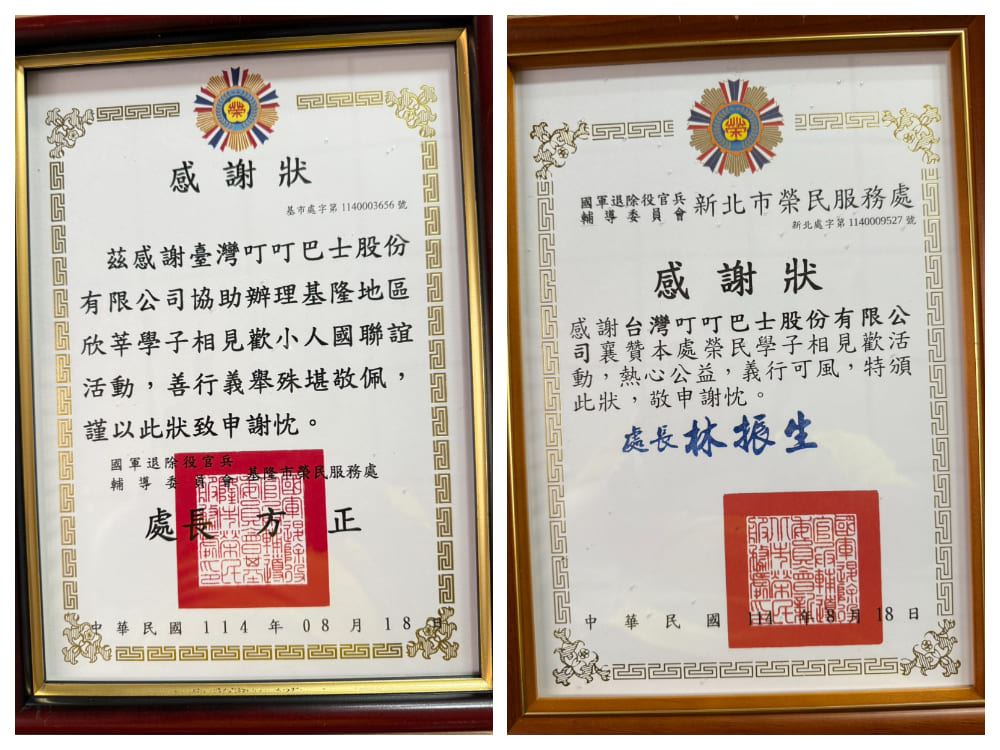 榮
感謝狀
基市處字第1140003656號
茲感謝臺灣叮叮巴士股份
有限公司協助辦理基隆地區
欣莘學子相見歡小人國聯誼
活動，善行義舉殊堪敬佩，
謹以此狀致申謝忱。
國軍退除役官兵
輔導委員會 基隆市榮民服務處
處長 方 正
中華民國 114 年 08 月 18 日
榮
國軍退除役官兵
輔導委員會 新北市榮民服務處
新北處字第1140009527號
感謝狀
感謝台灣叮叮巴士股份有限公
司襄贊本處榮民學子相見歡活
動，熱心公益，義行可風，特頒
此狀，敬申謝忱。
處長 林振生
中華民國 114 年 8 月 18 日